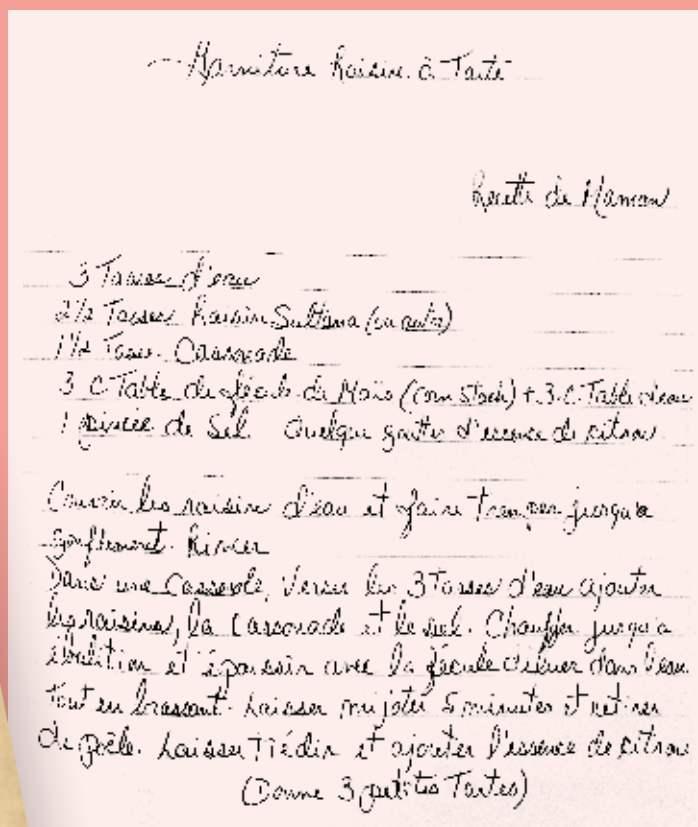 Garniture Raisin à Tarte
Recette de Maman
3 Tasses d'eau
2 1/2 Tasses Raisin Sultana (ou autre)
1 1/2 Tasse Cassonade
3 C. Table de fécule de Maïs (corn starch) + 3 C. Table d'eau
1 pincée de Sel Quelque goutte d'essence de citron
Couvrir les raisins d'eau et faire tremper jusqu'à
gonflement. Rincer
Dans une Casserole, Verser les 3 Tasses d'eau ajouter
les raisins, la cassonade et le sel. Chauffer jusqu'à
ébulition et épaissir avec la fécule diluer dans l'eau
Tout en brassant. Laisser mijoter 5 minutes et retirer
de poële. Laisser Tiédir et ajouter l'essence de citron
(Donne 3 petites Tartes)